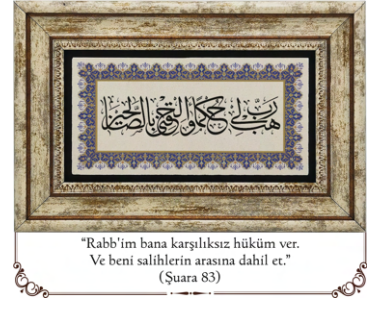 رب هب لي حكما وألحقني بالصالحين
“Rabb'im bana karşılıksız hüküm ver.
Ve beni salihlerin arasına dahil et.”
(Şuara 83)